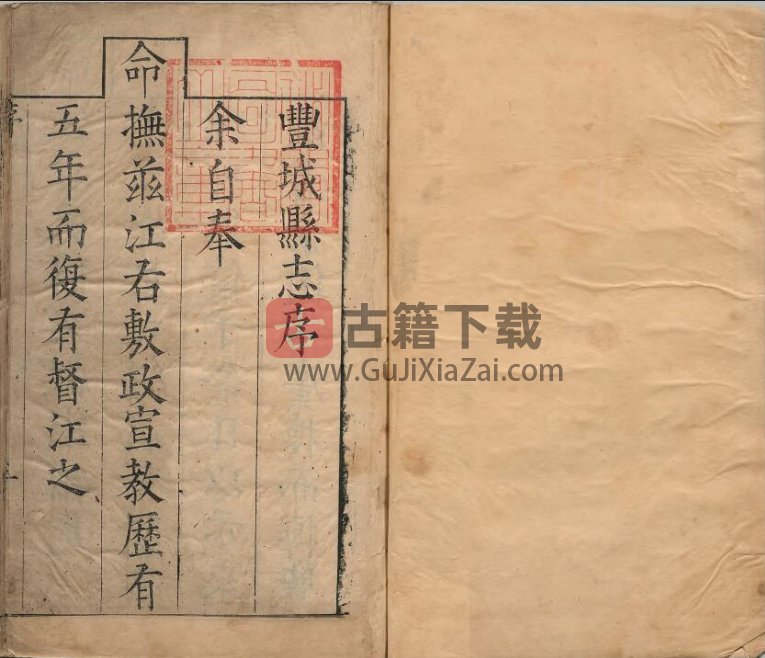 豐城縣志序
余自奉
命撫茲江右敷政宣教歷有
五年而復有督江之
序
古籍下载
www.GuJiXiaZai.com